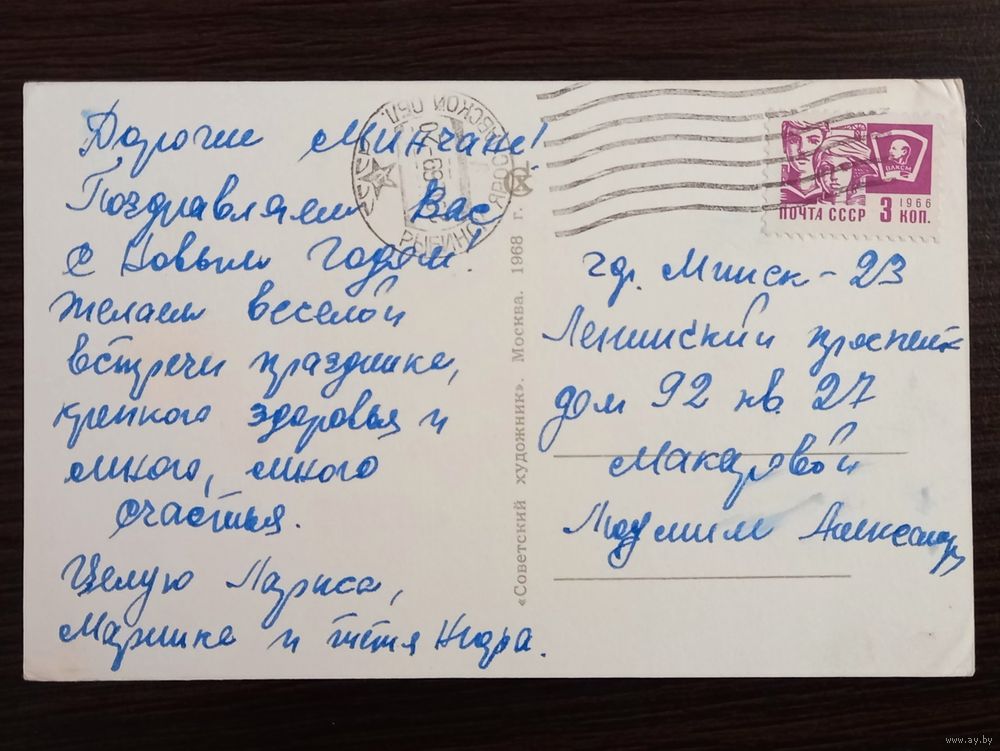 Дорогие Минчане!
Поздравляем Вас
с Новым годом!
Желаем веселой
встречи праздника,
крепкого здоровья и
много, много
счастья.
Целую Лариса,
Маришка и тётя Нюра.
«Советский художник». Москва. 1968 г.
РЫБИНС
ЯРОС ВСКОЙ ОБЛ.
ВЛКСМ
1966
ПОЧТА СССР 3 КОП.
гор. Минск-23
Ленинский проспект
дом 92 кв. 27
Макаровой
Людмиле Александр
www.ay.by